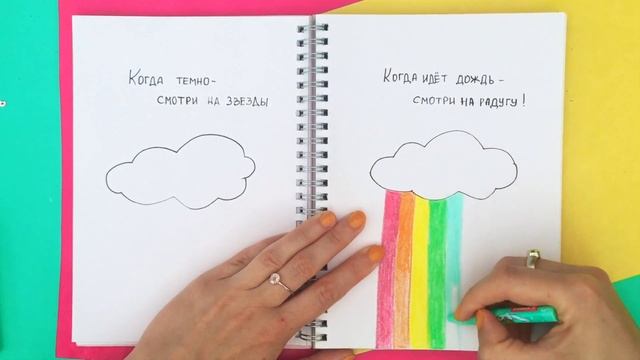 Когда темно-
смотри на звезды
Когда идёт дождь -
смотри на радугу!